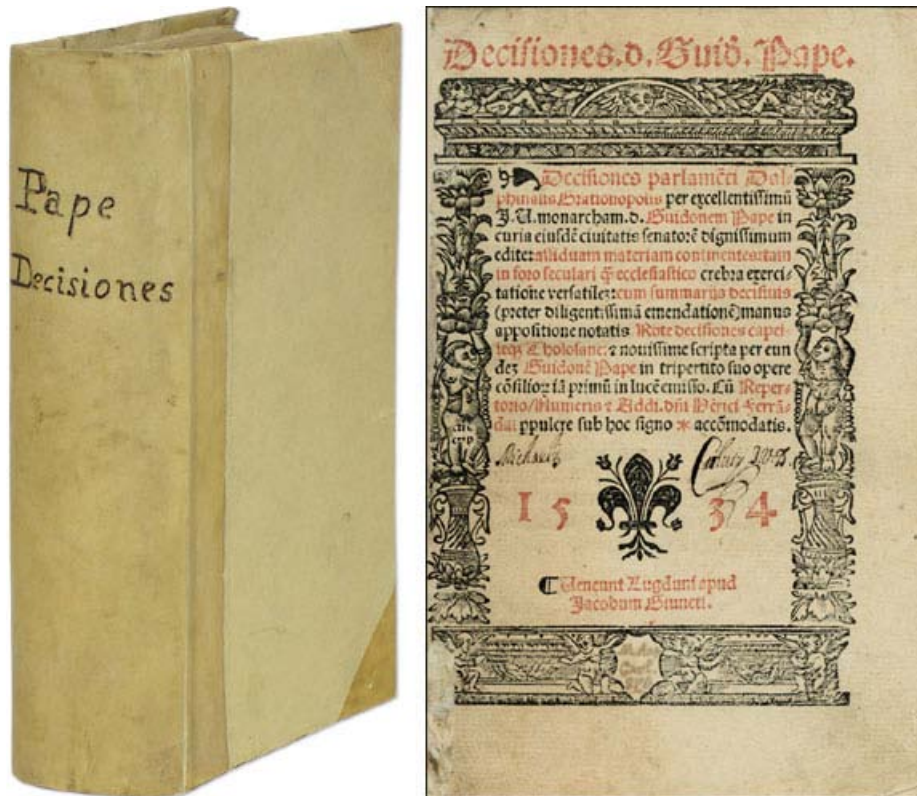 Pape
Decisiones
Decisiones.d.Guidõ.Pape.
Decisiones parlamẽti Dal-
phinalis Grationopolis per excellentissimũ
J.U.monarcham.d.Guidonem Pape in
curia eiusdẽ civitatis senatorẽ dignissimum
edite: assiduam materiam continentes: tam
in foro seculari ꝙ̃ ecclesiastico crebra exerci-
tatione versatilez: cum summarijs decisivis
(preter diligentissimã emendationẽ) manus
appositione notatis Rote decisiones capel-
leqꝫ Tholosane: ⁊ novissime scripta per eun
dez Guidonẽ Pape in tripertito suo opere
cõsilioꝝ iã primũ in lucẽ emisso. Cũ Reper-
torio/Numeris ⁊ Addi. dñi Ferrã-
dai ppulcre sub hoc signo * accõmodatis.
Michaelis
15 34
Veneunt Lugduni apud
Jacobum Giuncti.